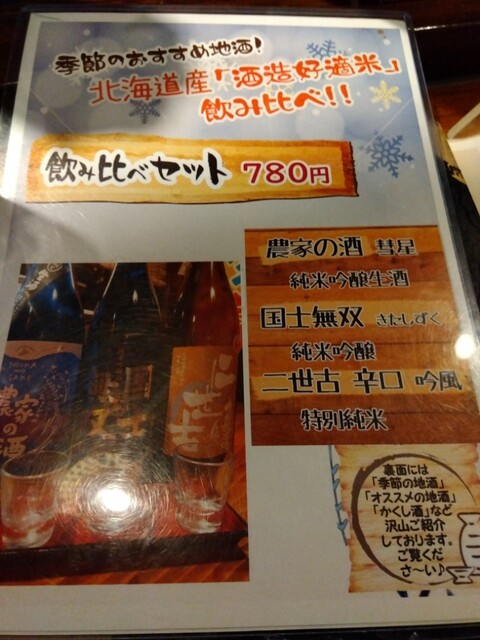 季節のおすすめ地酒!
北海道産「酒造好適米」
飲み比べ!!
飲み比べセット 780円
農家の酒 彗星
純米吟醸生酒
国士無双 きたしずく
純米吟醸
二世古 辛口 吟風
特別純米
農家の酒
二世古
裏面には
「季節の地酒」
「オススメの地酒」
「かくし酒」など
沢山ご紹介
しております。
ご覧くだ
さ~い♪